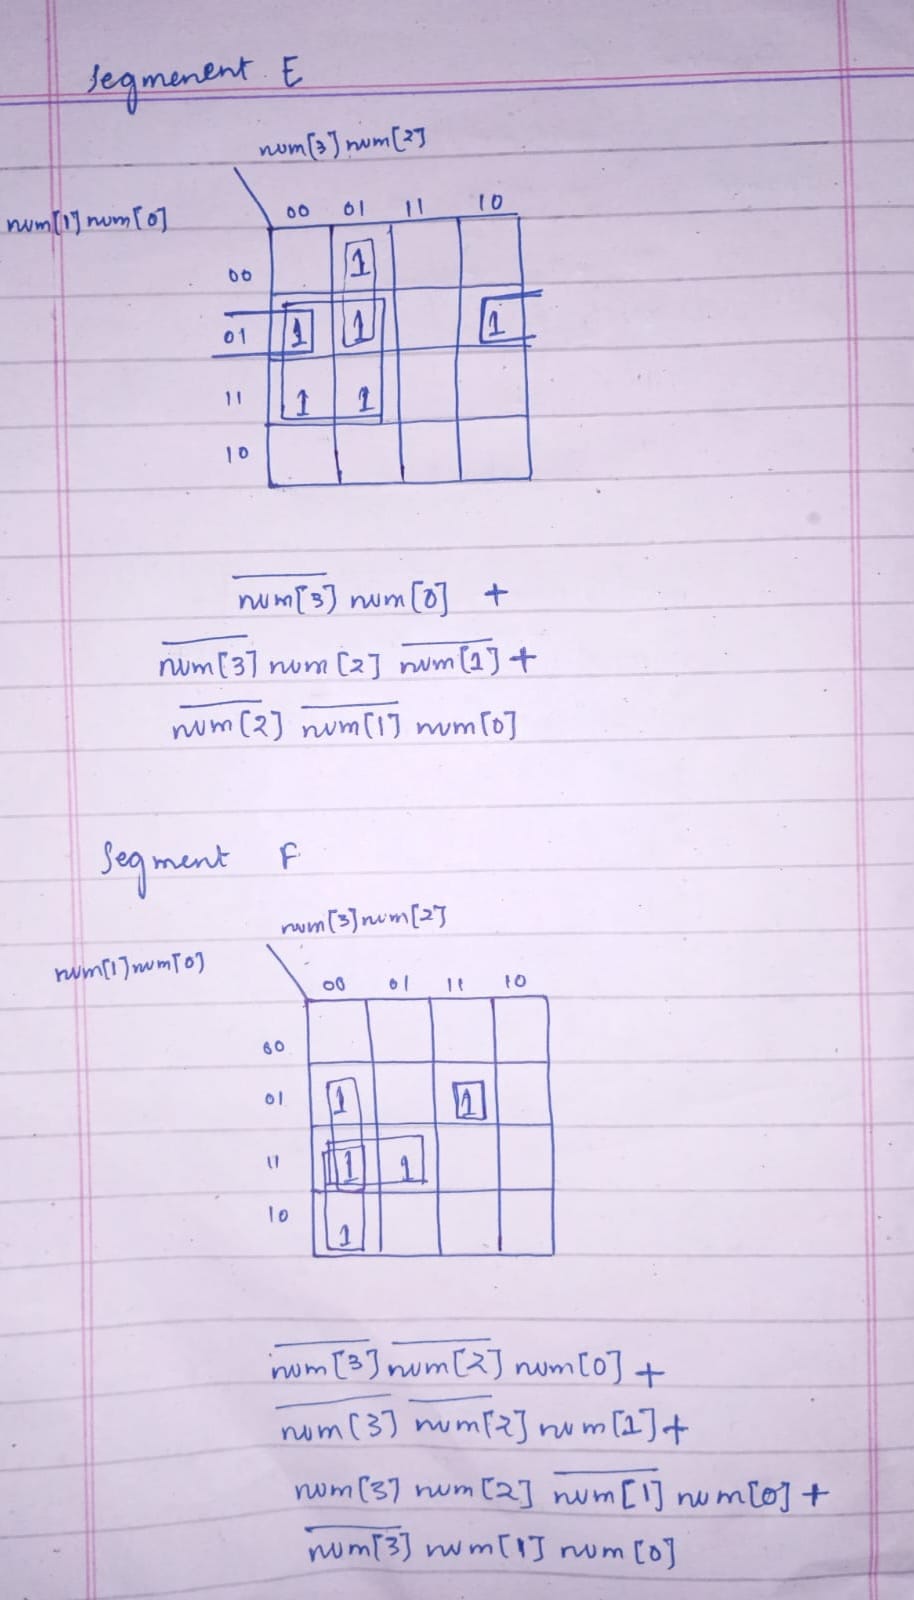 Segmenent E
num[3] num[2]
num[1] num[0]
00 01 11 10
00 1
01 1 1 1
11 1 1
10
n̅u̅m̅[̅3̅]̅ num[0] +
n̅u̅m̅[̅3̅]̅ num[2] n̅u̅m̅[̅1̅]̅ +
n̅u̅m̅[̅2̅]̅ n̅u̅m̅[̅1̅]̅ num[0]
Segment F
num[3] num[2]
num[1] num[0]
00 01 11 10
00
01 1 1
11 1 1
10 1
n̅u̅m̅[̅3̅]̅ n̅u̅m̅[̅2̅]̅ num[0] +
n̅u̅m̅[̅3̅]̅ n̅u̅m̅[̅2̅]̅ num[1] +
num[3] num[2] n̅u̅m̅[̅1̅]̅ num[0] +
n̅u̅m̅[̅3̅]̅ num[1] num[0]